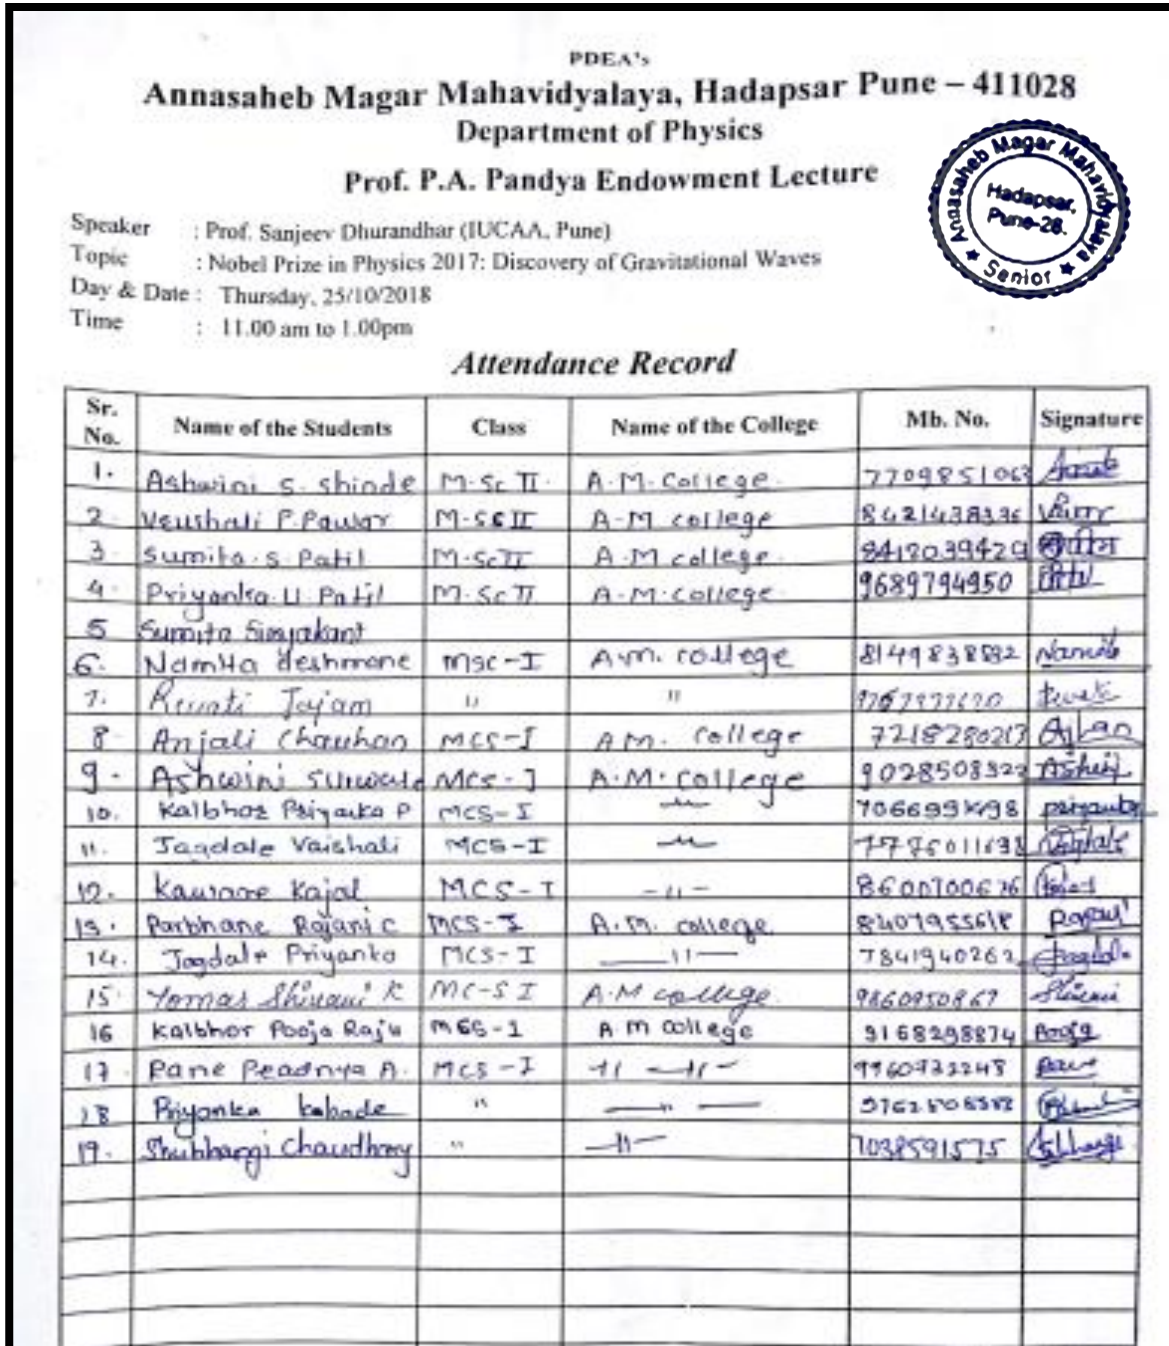 PDEA's
Annasaheb Magar Mahavidyalaya, Hadapsar Pune – 411028
Department of Physics
Prof. P.A. Pandya Endowment Lecture
Annasaheb Magar Mahavidyalaya
Hadapsar,
Pune-28.
★ Senior ★
Speaker : Prof. Sanjeev Dhurandhar (IUCAA, Pune)
Topic : Nobel Prize in Physics 2017: Discovery of Gravitational Waves
Day & Date : Thursday, 25/10/2018
Time : 11.00 am to 1.00pm
Attendance Record
Sr. No. Name of the Students Class Name of the College Mb. No. Signature
1. Ashwini S. Shinde M.Sc II. A.M. College 7709851063
2. P. Pawar M-Sc II A-M college
3. Sumita S. Patil M.Sc II A.M college 8412039429
4. Priyanka U. Patil M.Sc II A.M. college 9689794950
5 Sumita
6. Msc-I A.m. college
7. " "
8. Anjali Chauhan MCS-I A.M. College 7218280213
9. Ashwini MCS-I A.M. College
10. Kalbhor Priyanka P MCS-I -"- priyanka
11. Jagdale Vaishali MCS-I -"- Jagdale
12. Kajal MCS-I -"- 8600700676
13. Parbhane Rajani C MCS-I A.M. college
14. Jagdale Priyanka MCS-I -"- 7841940262 Jagdale
15. Shivani K MC-S I A.M college 9860950867
16 Kalbhor Pooja Raju MCS-1 A M College 9168298874 Pooja
17. A. MCS-I -"-
18 Priyanka kabade " -"-
19. Shubhangi Chaudhary " -"- 7038591575